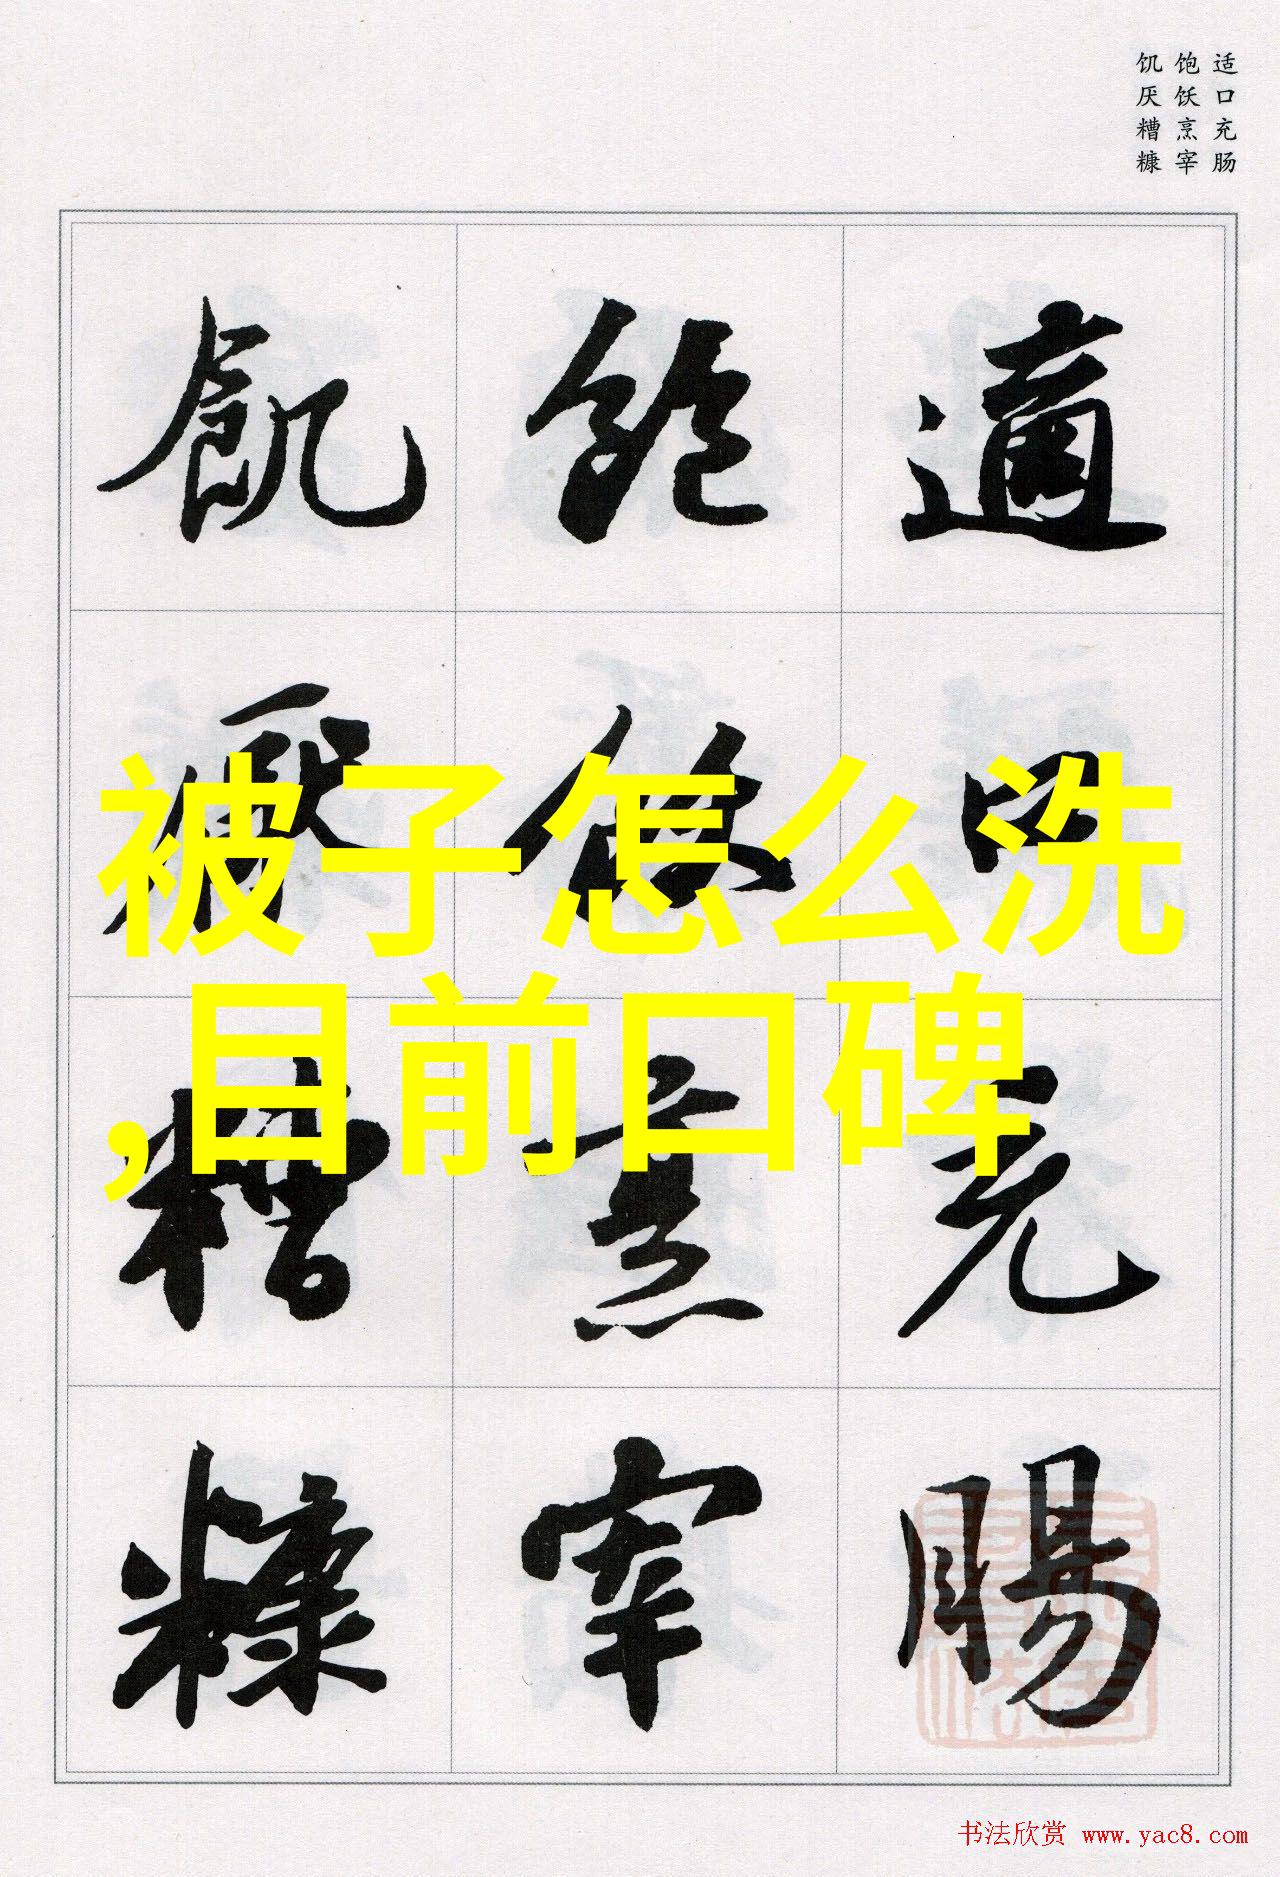 适口充肠
饱饫烹宰
饥厌糟糠
適口充腸
飽飫烹宰
飢厭糟糠
被子怎么洗
,目前口碑
书法欣赏 www.yac8.com